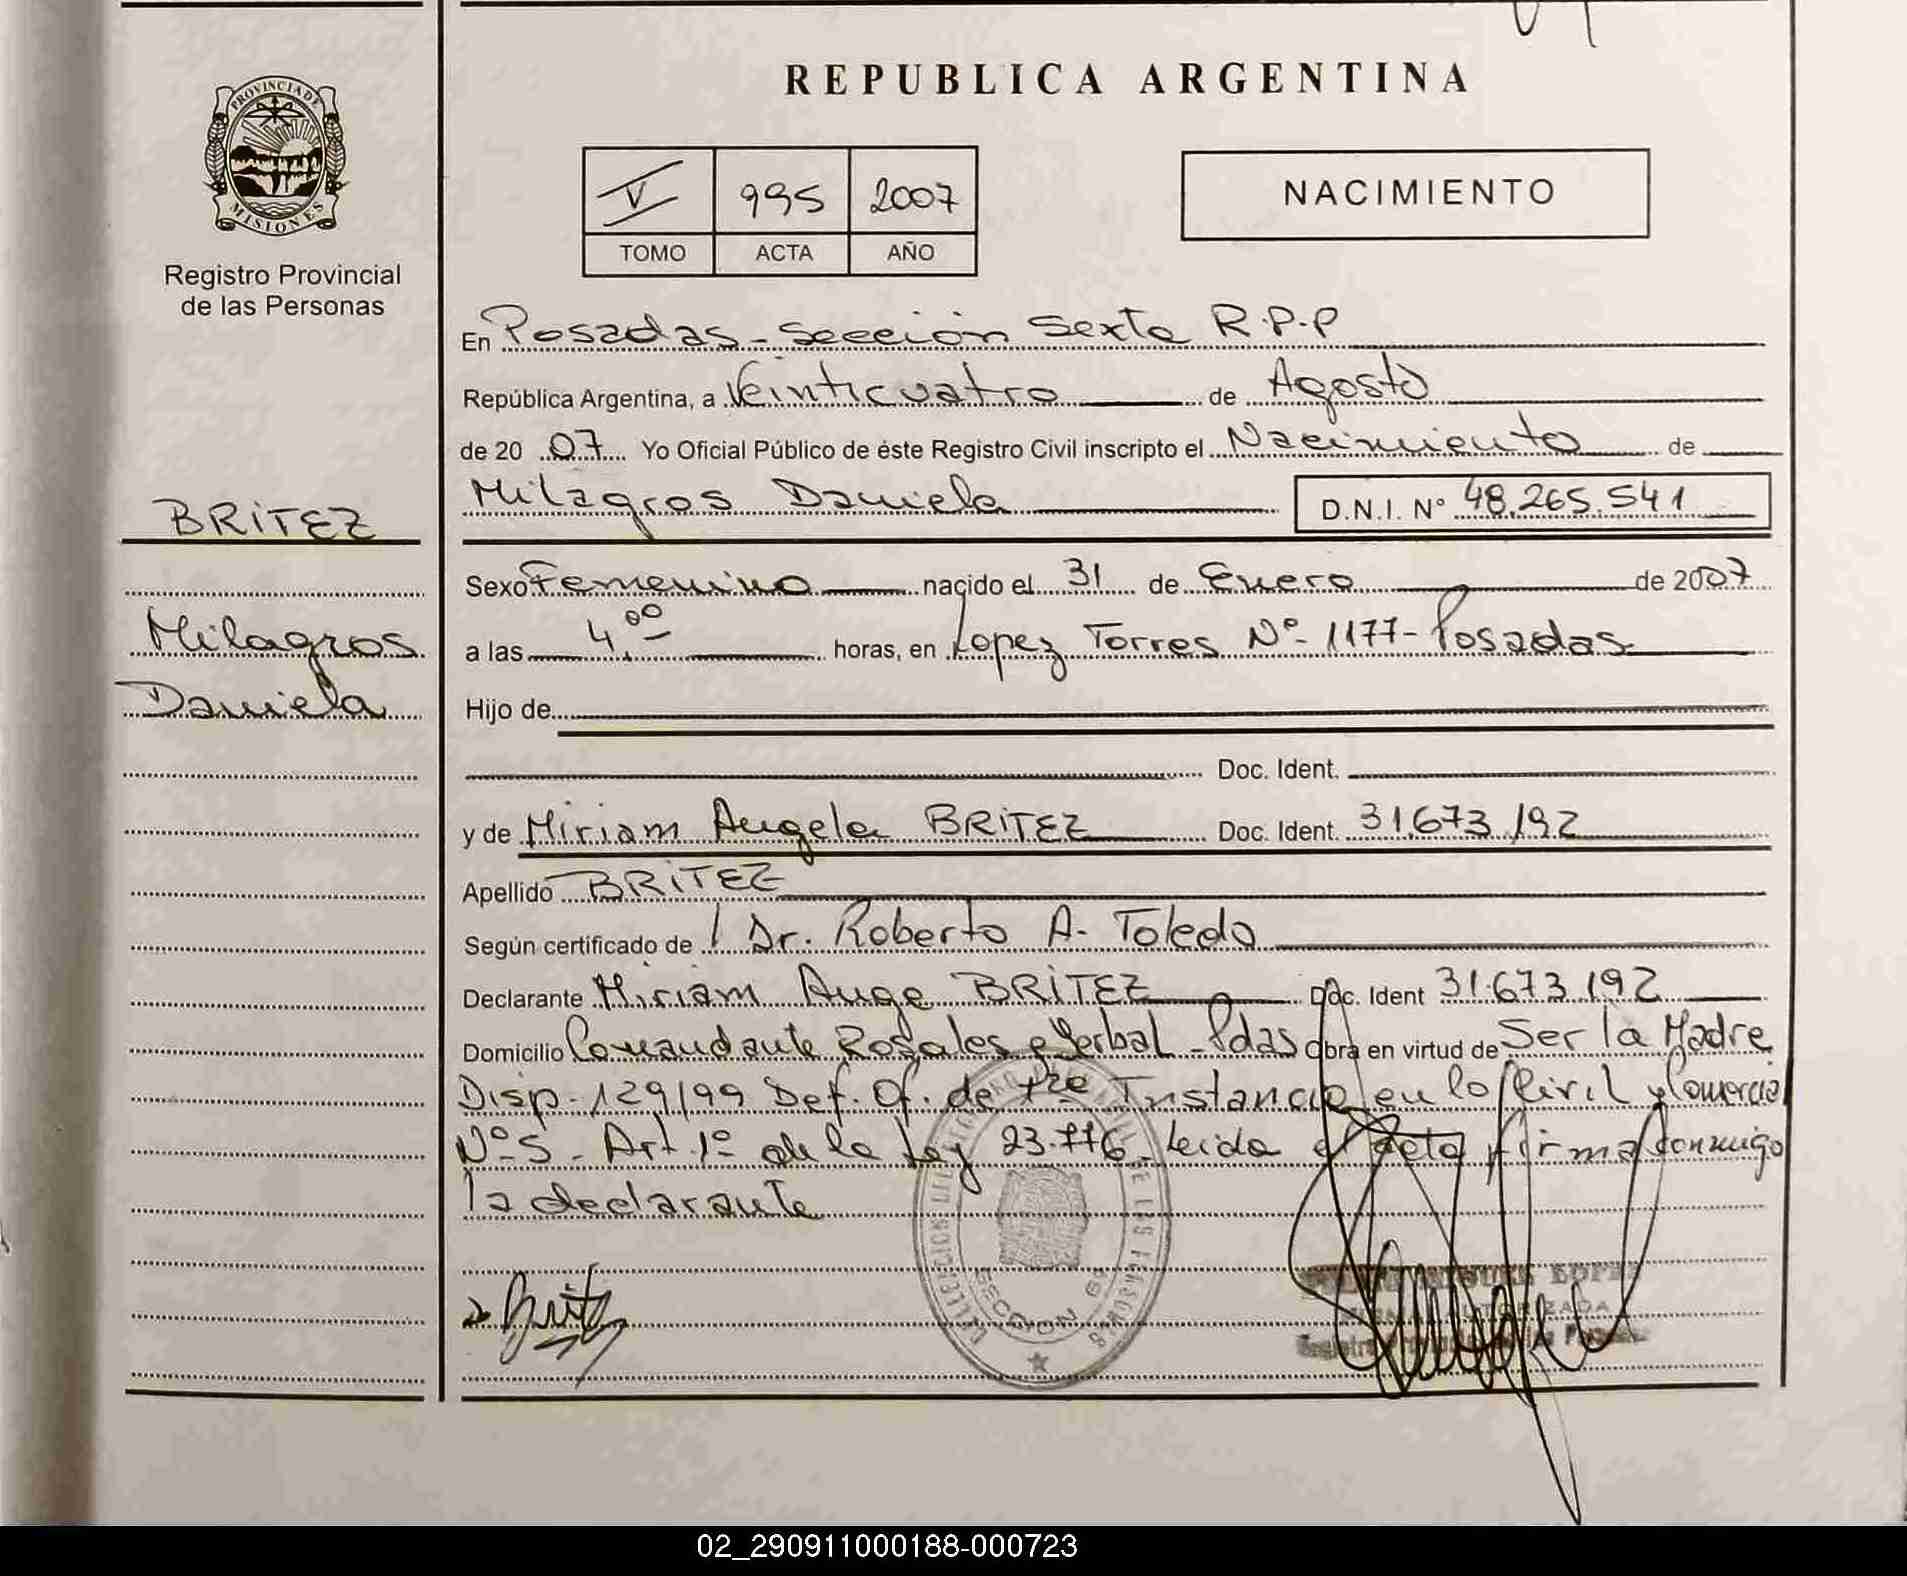 REPUBLICA ARGENTINA
PROVINCIA DE
MISIONES
Registro Provincial
de las Personas
V 995 2007
TOMO ACTA AÑO
NACIMIENTO
BRITEZ
Milagros
Daniela
En Posadas - Sección Sexta R.P.P
República Argentina, a Veinticuatro de Agosto
de 2007 Yo Oficial Público de éste Registro Civil inscripto el Nacimiento de
Milagros Daniela D.N.I. N° 48.265.541
Sexo Femenino nacido el 31 de Enero de 2007
a las 4.00 horas, en Lopez Torres N°- 1177- Posadas
Hijo de
Doc. Ident.
y de Miriam Angela BRITEZ Doc. Ident. 31.673.192
Apellido BRITEZ
Según certificado de Dr. Roberto A. Toledo
Declarante Miriam Ange BRITEZ Doc. Ident 31.673.192
Domicilio Comandante Rosales e Yerbal - Pdas Obra en virtud de Ser la Madre
Disp. 129/99 Def. Of. de 1ra Instancia en lo Civil y Comercial
N°-5 - Art. 1° de la Ley 23.776 - Leida el acta firma conmigo
la declarante
Britez
SECCION 6a
DE LAS PERSONAS
AUTORIZADA
02_290911000188-000723